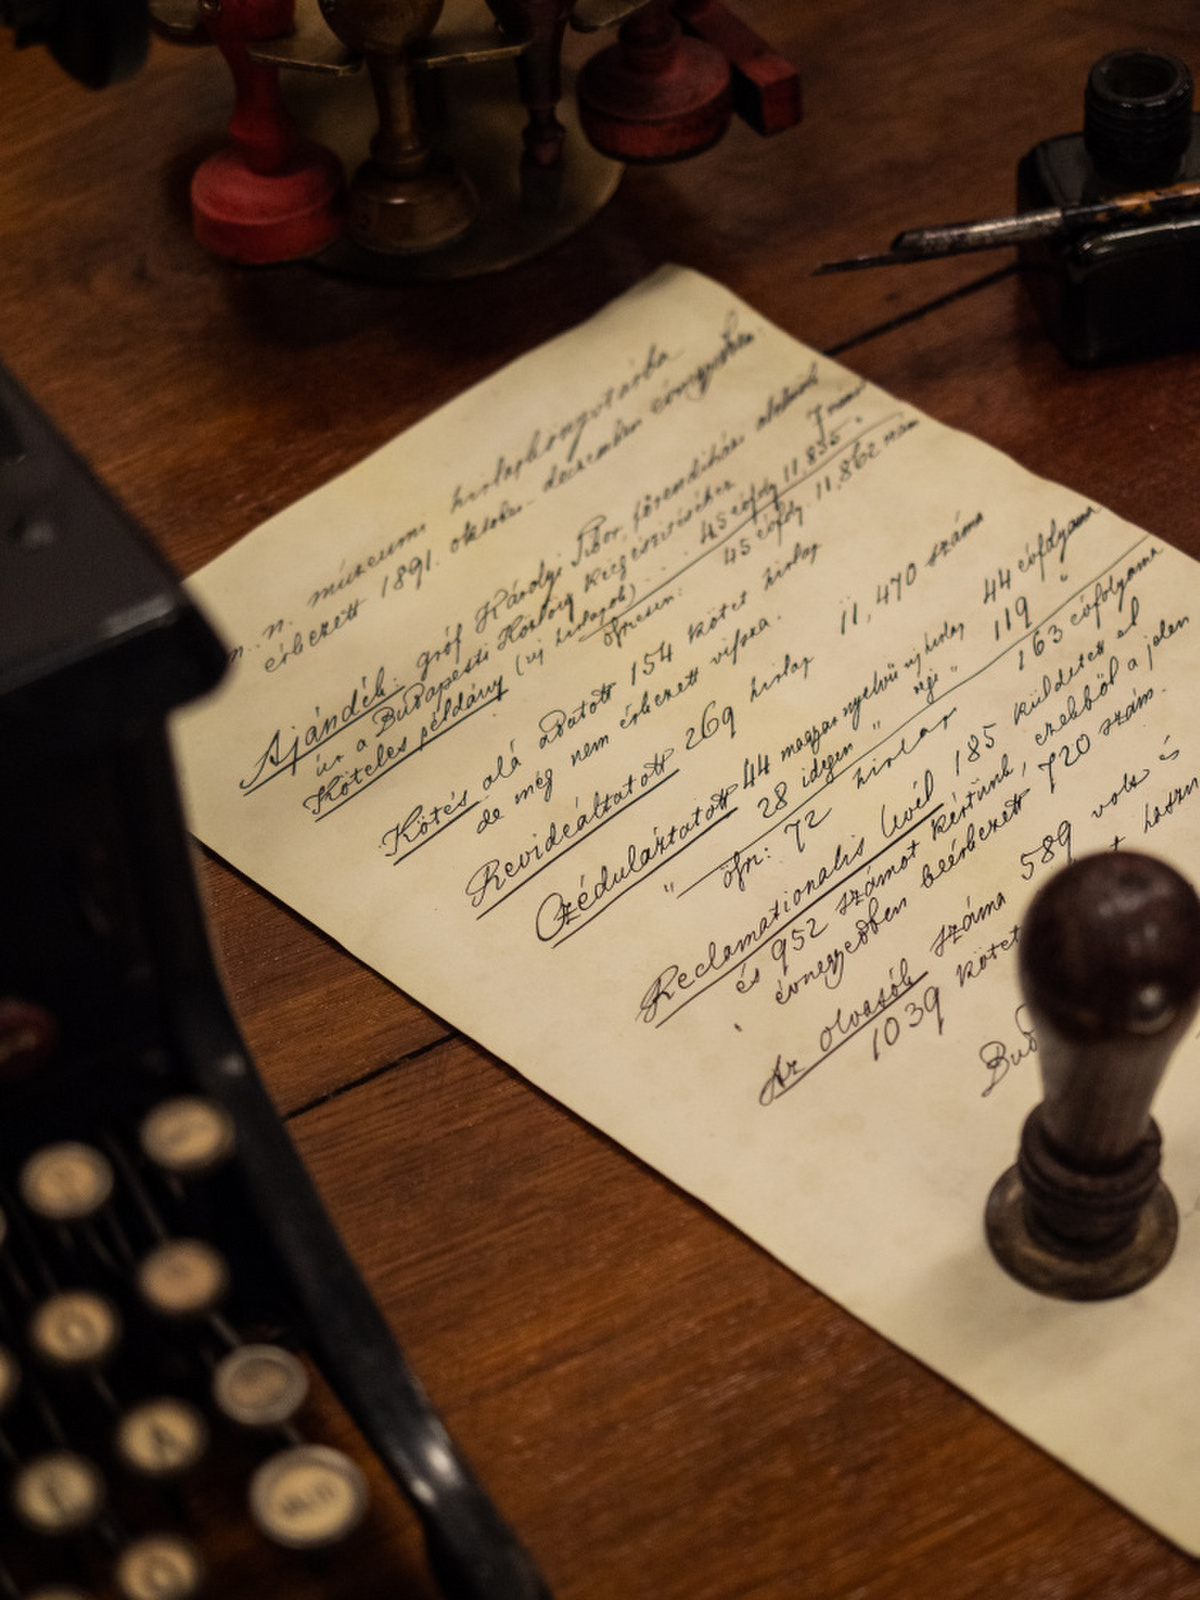 m. n. múzeumi hirlapkönyvtárba
érkezett 1891. október - december évnegyedben:
Ajándék: gróf Károlyi Tibor főrendiházi alelnök
úr a Budapesti Közlöny kiegészítéséhez 7 szám
Köteles példány (új hirlapok) .. 45 évfoly 11,855 "
öszvesen: 45 évfoly. 11,862 szám
Kötés alá adatott 154 kötet hirlap
de még nem érkezett vissza.
Revideáltatott 269 hirlap 11,470 száma
Czéduláztatott 44 magyar nyelvű új hirlap 44 évfolyama
" 28 idegen " régi " 119 "
öszv: 72 hirlap 163 évfolyama
Reclamationalis levél 185 küldetett el
és 952 számot kértünk, ezekből a jelen
évnegyedben beérkezett 720 szám.
Az olvasók száma 589 volt és
1039 kötet
A